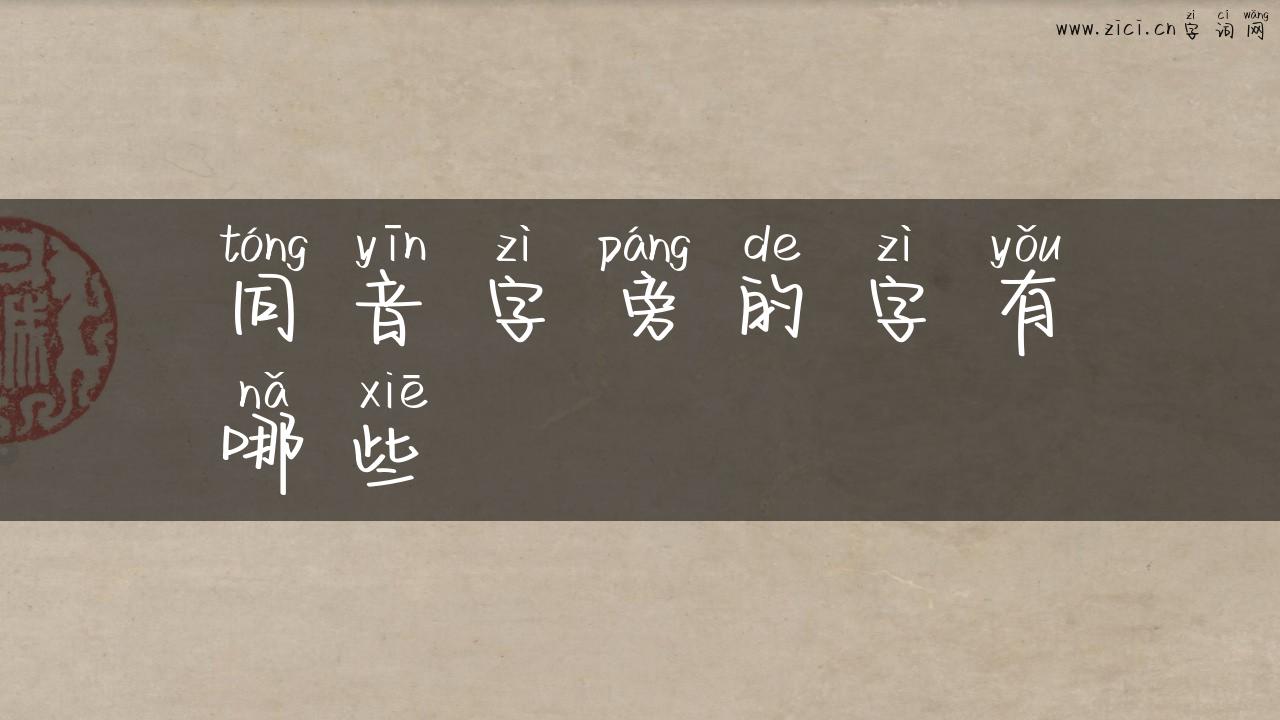 zì cí wǎng
www.zici.cn字词网
tóng yīn zì páng de zì yǒu
同音字旁的字有
nǎ xiē
哪些